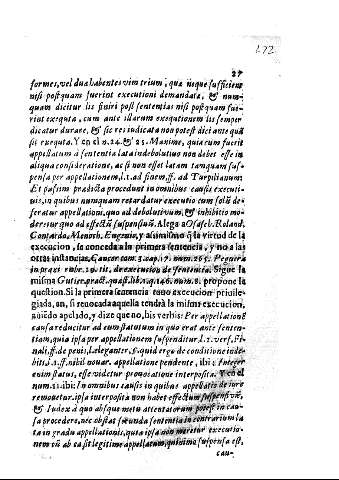 172
27
formes, vel dua habentes vim trium, quæ neque sufficiens
nisi postquam fuerint executioni demandata, & num-
quam dicitur lis finiri post sententias nisi postquam fue-
rint exequta, cum ante illarum exequtionem lis semper
dicatur durare, & sic res iudicata non potest dici ante quã
sit exequta. Y en el n. 24. & 25. Maxime, quia cum fuerit
appellatum à sententia lata in debolutivo non debet esse in
aliqua consideratione, ac si non esset latam tanquam sus-
pensa per appellationem, l. 1. ad finem, ff. ad Turpilianum.
Et passim prædicta procedunt in omnibus causis executi-
vis, in quibus nunquam retardatur executio cum solũ de-
feratur appellationi, quo ad debolutivum, & inhibitio mo-
deretur quo ad effectũ suspensiuũ. Alega a Osasch. Roland.
Menoch. Eugenio, y assimismo q̃ la virtud de la
execucion, se conceda a la primera sentencia, y no a las
otras instancias, Cancer tom. 3. cap. 17. num. 265. Peguera
in praxi rubr. 19. tit. de execucion de sentencia. Sigue la
misma Gutier. pract. quæst. lib. 1. q. 146. num. 8. propone la
question. Si la primera sentencia tuvo execucion priuile-
giada, an, si reuocada aquella tendrà la misma execucion,
auiẽdo apelado, y dize que no, bis verbis: Per appellationẽ
causa reducitur ad eum statutum in quo erat ante senten-
tiam, quia ipsa per appellationem suspenditur l. 1. vers. Fi-
nali, ff. de penis, l. eleganter, §. quid ergo de conditione inde-
bit. l. 1. ff. nihil nouar. appellatione pendente, ibi: Integer
enim status, esse videtur prouocatione interposita. Y en el
num. 11. ibi: In omnibus causis in quibus appellatio de iure
remouetur, ipsa interposita non habet effectum suspensivũ,
& Iudex à quo absque metu attentatorum potest in cau-
sa procedere, nec obstat secunda sententia in contrarium la-
ta in gradu appellationis, quia ipsa non meretur executio-
nem vñ ab ea sit legitime appellatum, quinimo suspensa est,
cau-